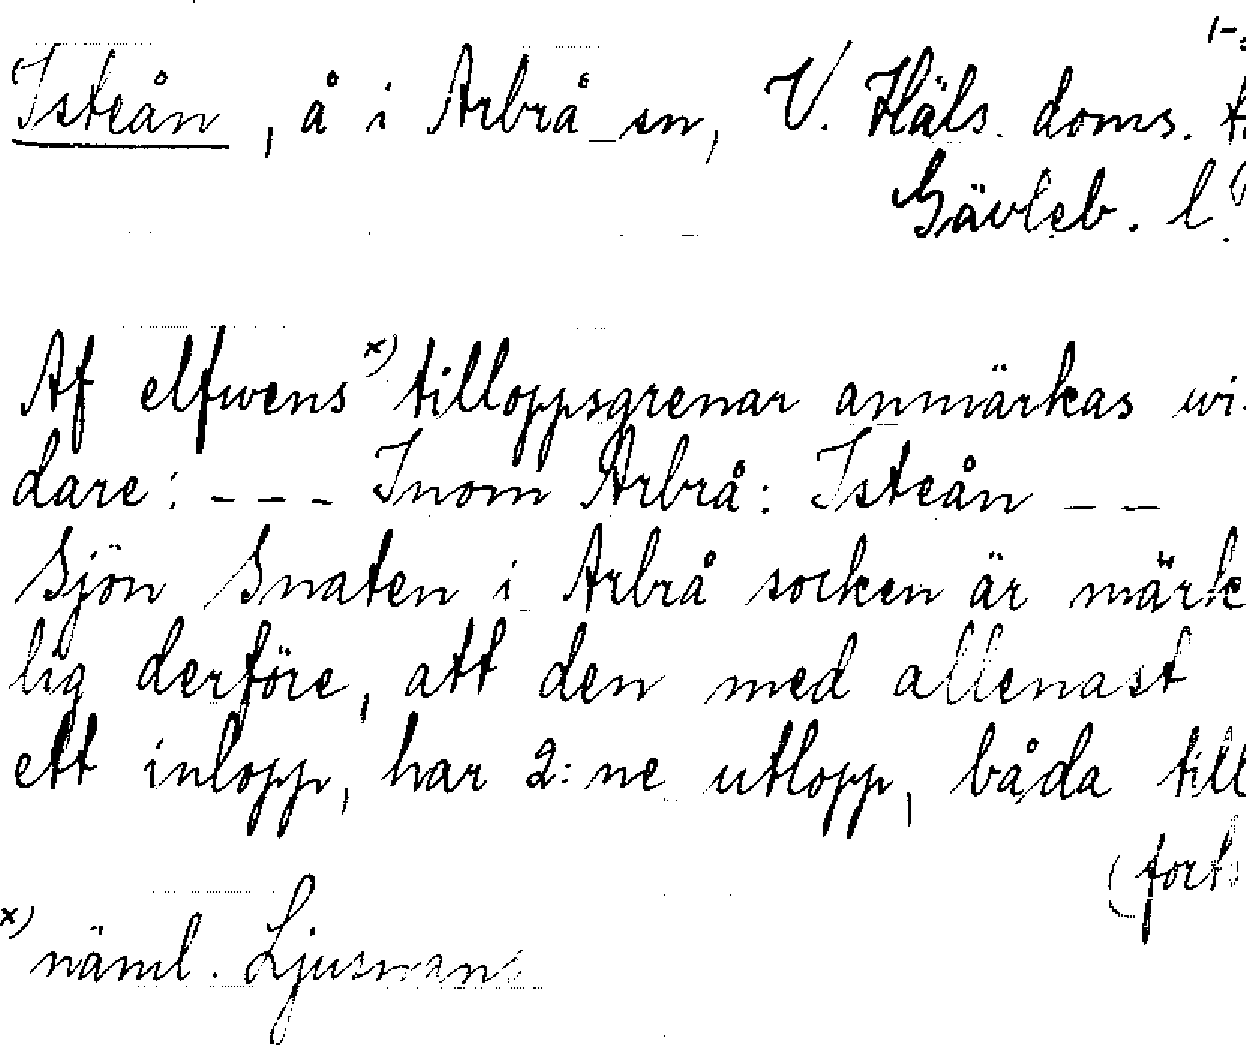 Isteån, å i Arbrå sn, V. Häls. doms.
Gävleb. l.
Af elfwens x) tilloppsgrenar anmärkas wi-
dare: - - - Inom Arbrå: Isteån - -
Sjön Snaten i Arbrå socken är märk
lig derföre, att den med allenast
ett inlopp, har 2:ne utlopp, båda till
(forts
x) näml. Ljusnans